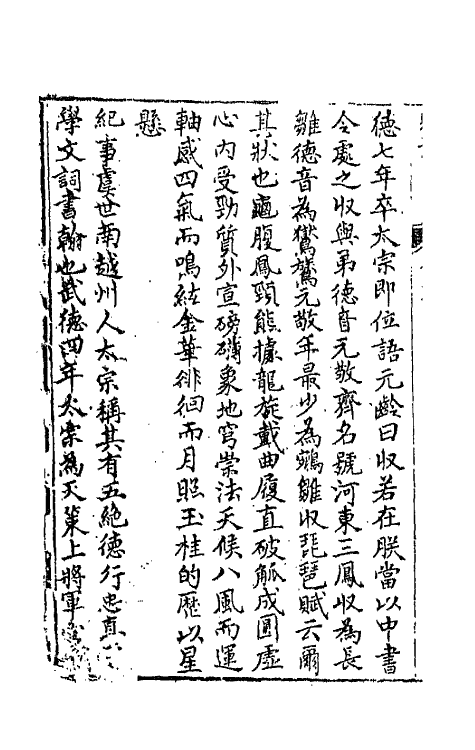 德七年卒太宗即位語元齡曰收若在朕當以中書
令處之收與弟德音元敬齊名號河東三鳳收為長
雛德音為鸑鷟元敬年最少為鵷雛收琵琶賦云爾
其狀也龜腹鳳頸熊據龍旋戴曲履直破觚成圓虛
心內受勁質外宣磅礡象地穹崇法天候八風而運
軸感四氣而鳴絃金華徘徊而月照玉桂的歷以星
懸
紀事虞世南越州人太宗稱其有五絕德行忠直
學文詞書翰也武德四年太宗為天策上將軍